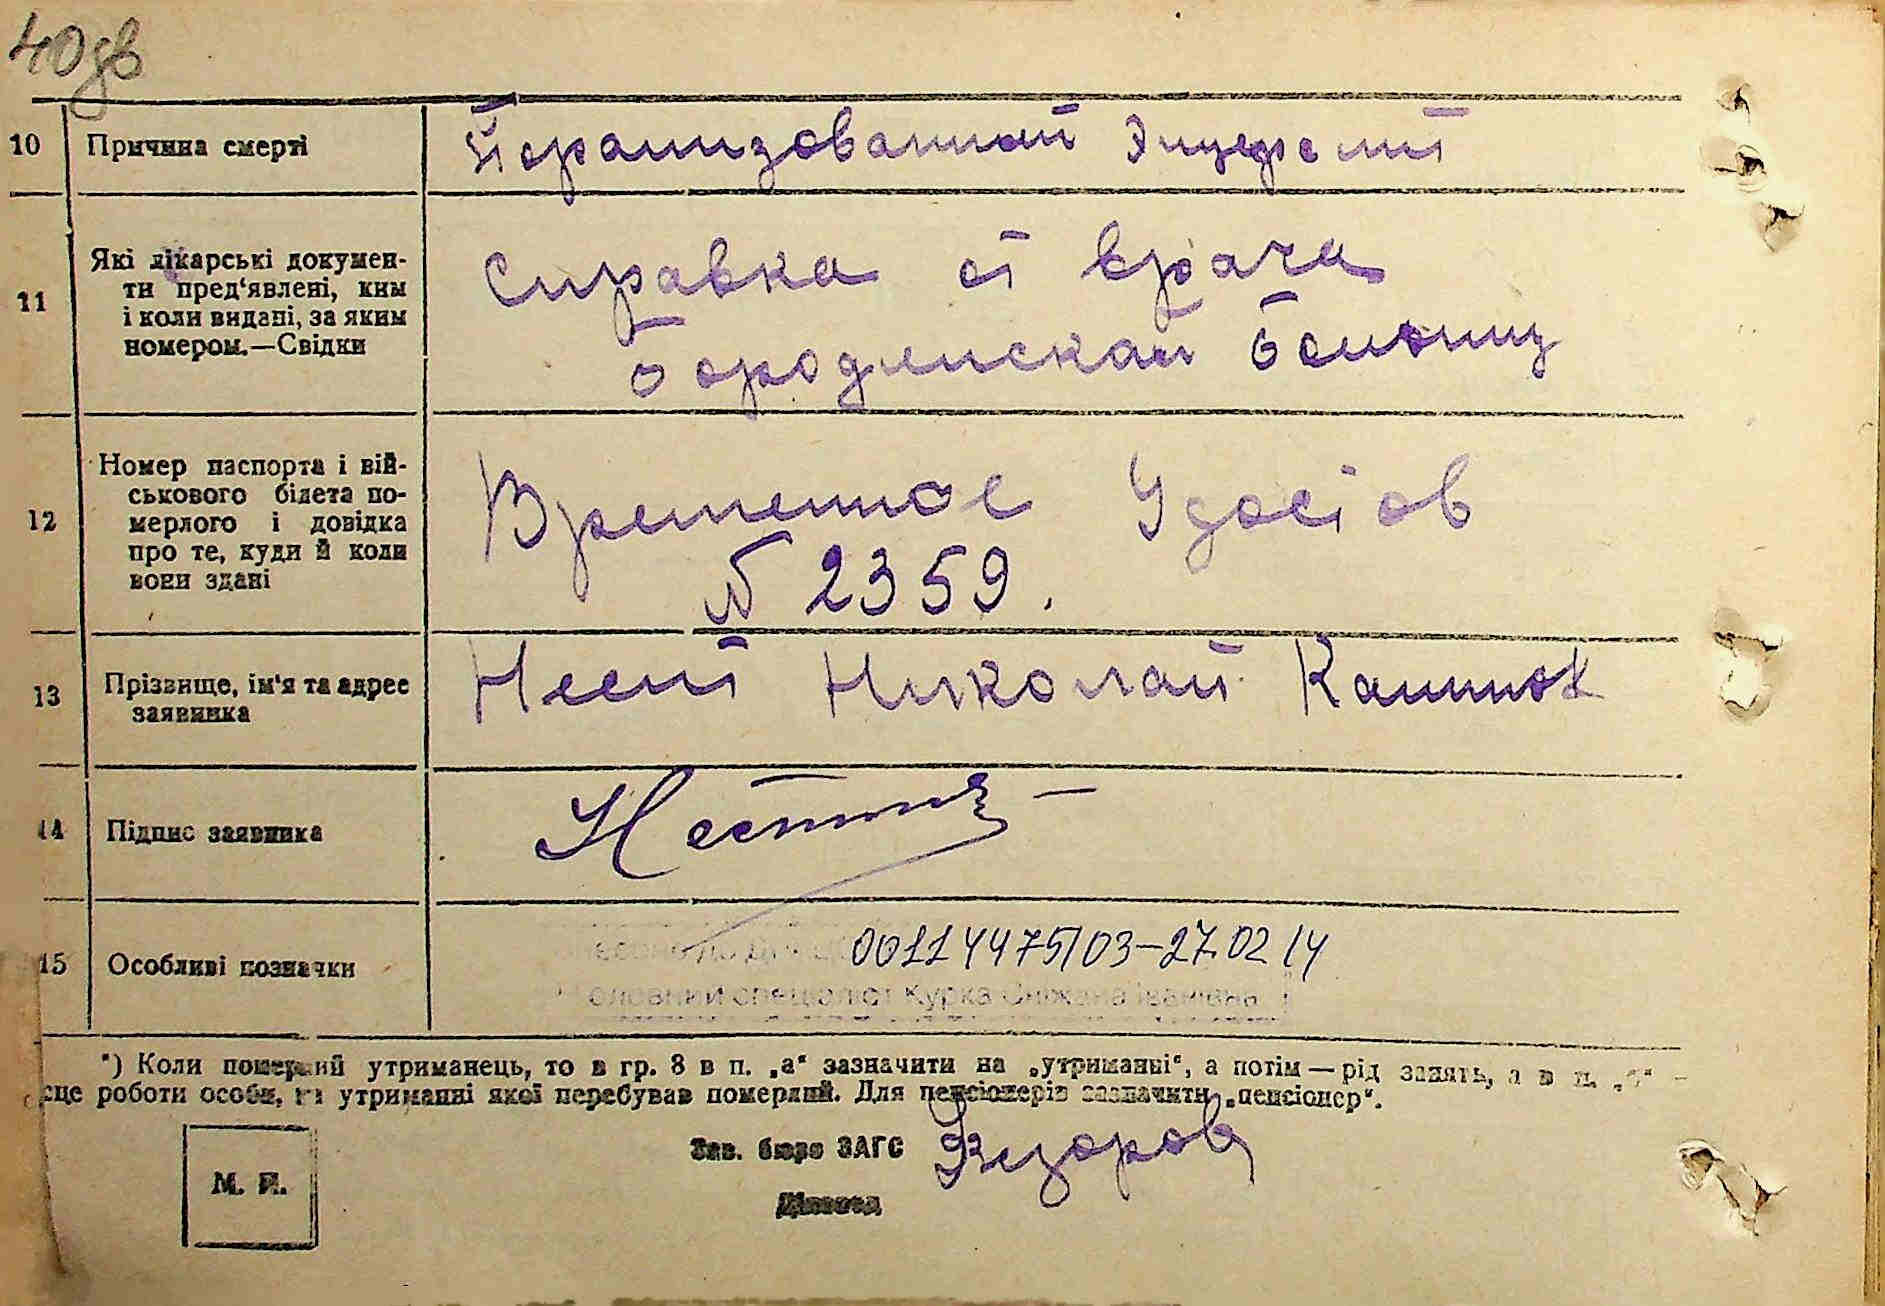 40дв
10 Причина смерті Парализованный Энцефалит
11 Які лікарські докумен-
ти пред‘явлені, ким
і коли видані, за яким
номером.—Свідки
Справка от врача
Бородянской Больниц
12 Номер паспорта і вій-
ськового білета по-
мерлого і довідка
про те, куди й коли
вони здані
Временное Удостов
№ 2359.
13 Прізвище, ім‘я та адрес
заявника
Николай
14 Підпис заявника
15 Особливі позначки
00114475103-27.02.14
Головний спеціаліст Курка Сніжана Іванівна
*) Коли померлий утриманець, то в гр. 8 в п. „а“ зазначити на „утриманні“, а потім — рід занять, а в п. „б“ —
сце роботи особи, на утриманні якої перебував померлий. Для пенсіонерів зазначити „пенсіонер“.
Зав. бюро ЗАГС
М. П.
Діловод